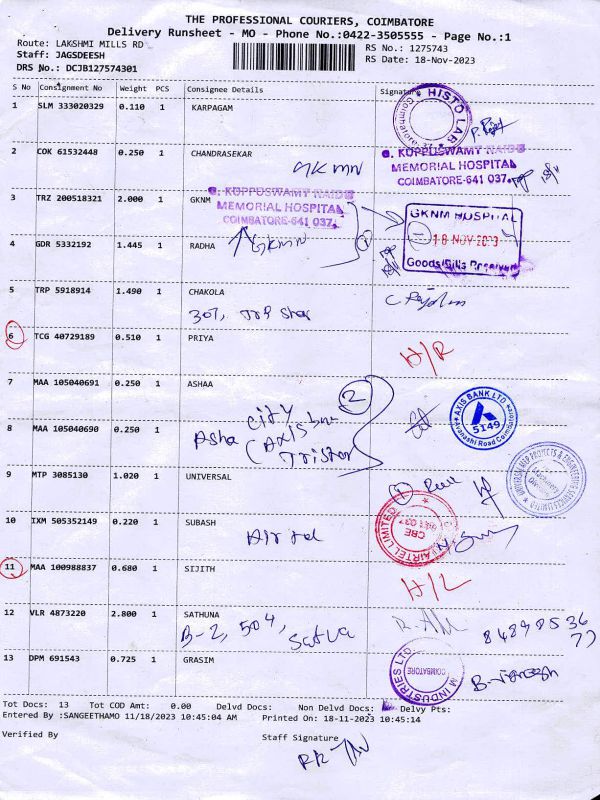 THE PROFESSIONAL COURIERS, COIMBATORE
Delivery Runsheet - MO - Phone No.:0422-3505555 - Page No.:1
Route: LAKSHMI MILLS RD
Staff: JAGSDEESH
DRS No.: DCJB127574301
RS No.: 1275743
RS Date: 18-Nov-2023
S No Consignment No Weight PCS Consignee Details Signature
1 SLM 333020329 0.110 1 KARPAGAM
HISTO LAB
Coimbatore-37
2 COK 61532448 0.250 1 CHANDRASEKAR
GKMN
G. KUPPUSWAMY NAIDU
MEMORIAL HOSPITAL
COIMBATORE-641 037.
3 TRZ 200518321 2.000 1 GKNM
G. KUPPUSWAMY NAIDU
MEMORIAL HOSPITAL
COIMBATORE-641 037.
GKNM HOSPITAL
18 NOV 2023
Goods/Bills Received
4 GDR 5332192 1.445 1 RADHA
GKMN
5 TRP 5918914 1.490 1 CHAKOLA
307, Trp Star
6 TCG 40729189 0.510 1 PRIYA
H/R
7 MAA 105040691 0.250 1 ASHAA
2
AXIS BANK LTD.
5149
8 MAA 105040690 0.250 1
Asha city
(Axis
Tristar
9 MTP 3085130 1.020 1 UNIVERSAL
1
10 IXM 505352149 0.220 1 SUBASH
Airtel
AIRTEL LIMITED
CBE
641 037
11 MAA 100988837 0.680 1 SIJITH
H/L
12 VLR 4873220 2.800 1 SATHUNA
B-2, 504, Satva
13 DPM 691543 0.725 1 GRASIM
M INDUSTRIES LTD.
COIMBATORE
Tot Docs: 13 Tot COD Amt: 0.00 Delvd Docs: Non Delvd Docs: Delvy Pts:
Entered By :SANGEETHAMO 11/18/2023 10:45:04 AM Printed On: 18-11-2023 10:45:14
Verified By Staff Signature